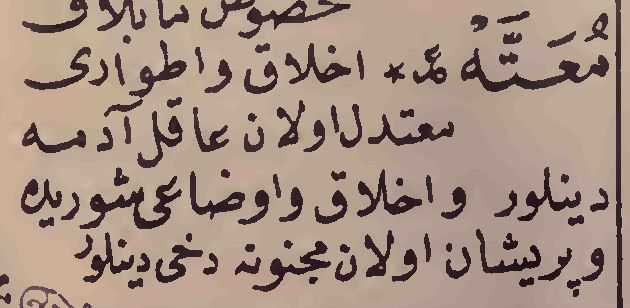 خصوص
مُعَتَّهْ * اخلاق و اطوارى
معتدل اولان عاقل آدمه
دينلور و اخلاق و اوضاعى شوريده
و پريشان اولان مجنونه دخى دينلور